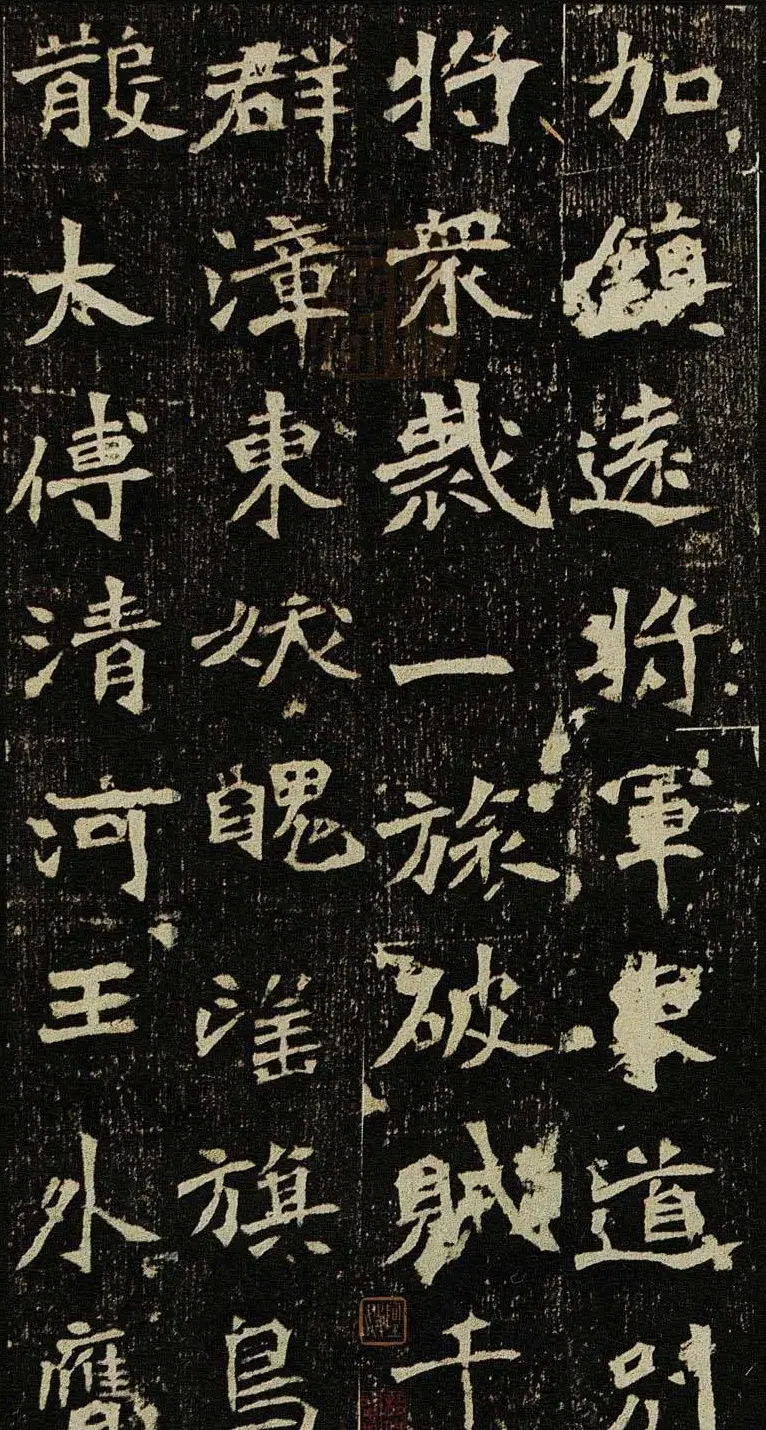 加鎮遠將軍東道別
將衆裁一旅破賊千
群漳東妖醜旗鳥
散太傅清河王外膺